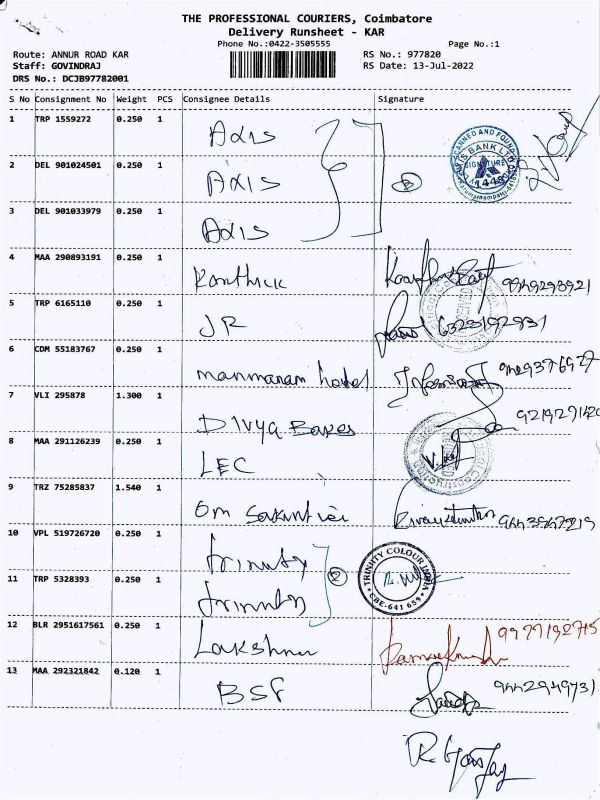 THE PROFESSIONAL COURIERS, Coimbatore
Delivery Runsheet - KAR
Phone No.:0422-3505555
Page No.:1
Route: ANNUR ROAD KAR
RS No.: 977820
Staff: GOVINDRAJ
RS Date: 13-Jul-2022
DRS No.: DCJB97782001
S No Consignment No Weight PCS Consignee Details Signature
1 TRP 1559272 0.250 1 Axis
2 DEL 901024501 0.250 1 Axis
3 DEL 901033979 0.250 1 Axis
3
SCANNED AND FOUND
AXIS BANK LTD
SIGNATURE
4 MAA 290893191 0.250 1 Karthick
5 TRP 6165110 0.250 1 JR
6 CDM 55183767 0.250 1 manmaram hotel
7 VLI 295878 1.300 1 Divya Bakes
8 MAA 291126239 0.250 1 LEC
9 TRZ 75285837 1.540 1 Om
10 VPL 519726720 0.250 1 Trinity
11 TRP 5328393 0.250 1 Trinity
2
TRINITY COLOUR INDIA
CBE-641 659
12 BLR 2951617561 0.250 1 Lakshmi
13 MAA 292321842 0.120 1 BSF
9442949731